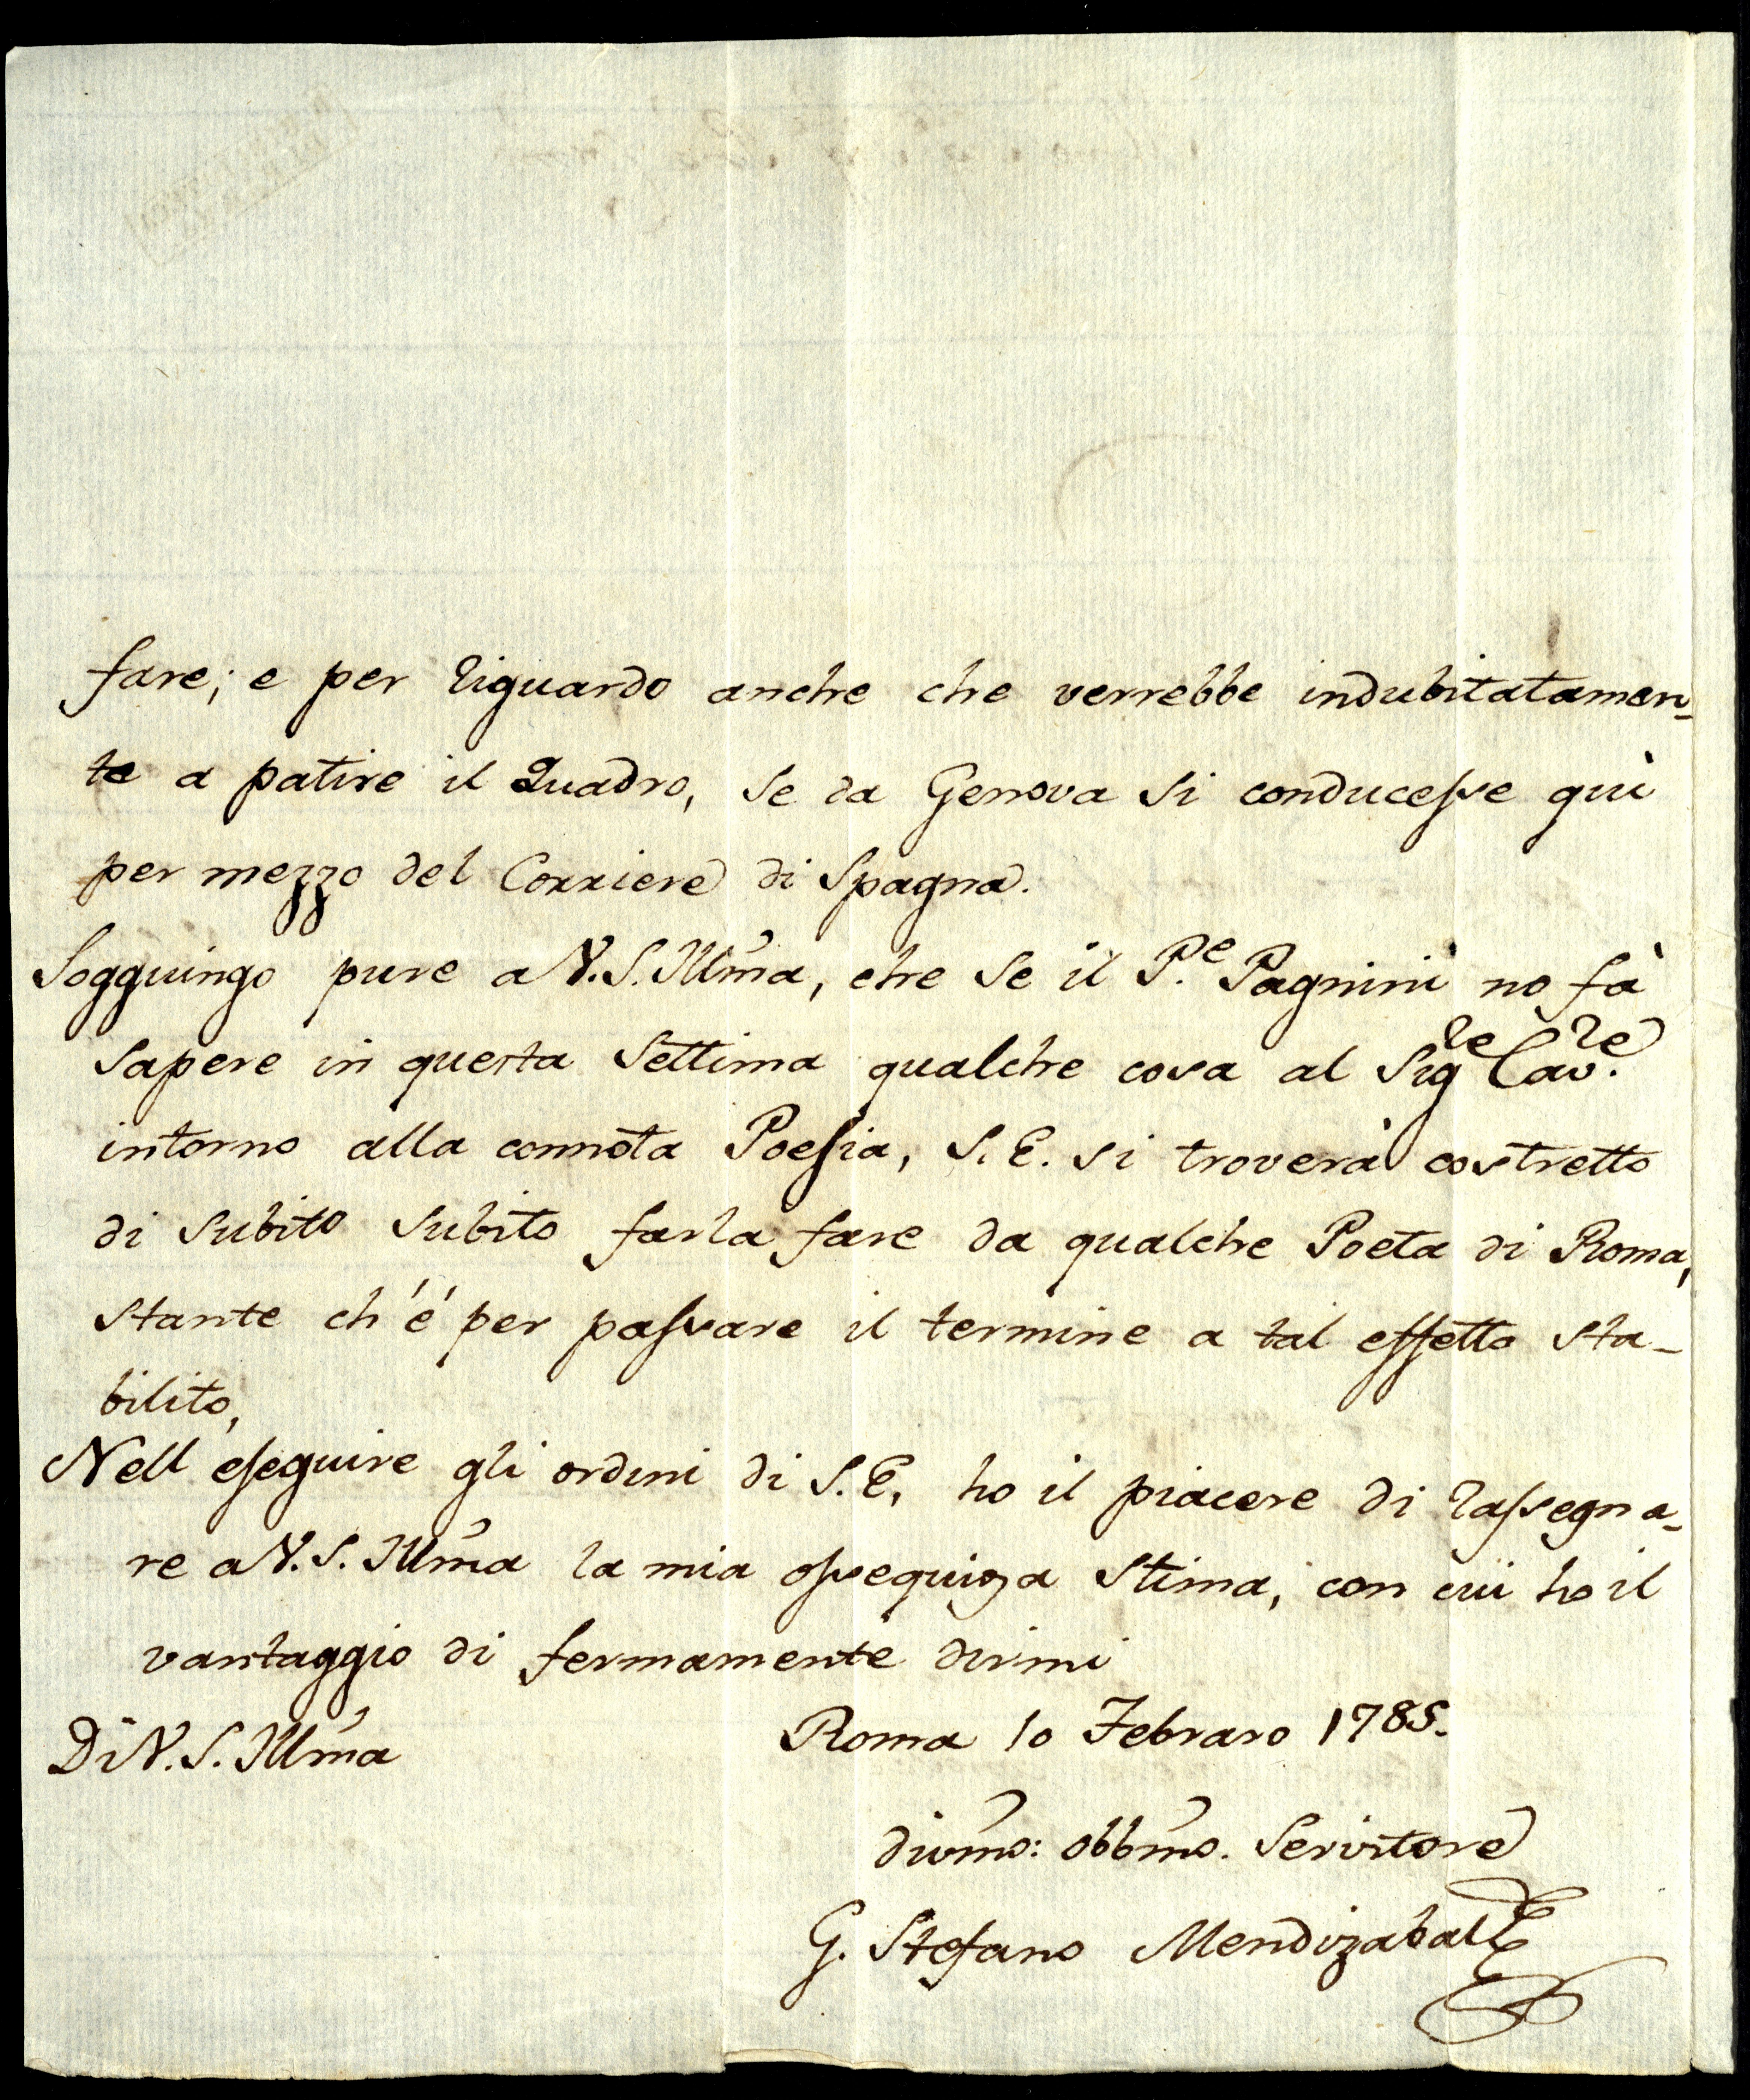 fare; e per riguardo anche che verrebbe indubitatamen-
te a patire il Quadro, se da Genova si conducesse quì
per mezzo del Corriere di Spagna.
Sogguingo pure a V.S. Illma, che se il P.e Pagnini no fà
sapere in questa Settima qualche cosa al Sigre Cavre.
intorno alla connota Poesia, S.E. si troverà costretto
di subito subito farla fare da qualche Poeta di Roma,
stante ch'é per passare il termine a tal effetto sta-
bilito,
Nell eseguire gli ordini di S.E, ho il piacere di rassegna-
re a V.S. Illma la mia ossequioza stima, con cui ho il
vantaggio di fermamente dirmi
Di V.S. Illma
Roma 10 Febraro 1785.
divmo: obbmo. Servitore
G. Stefano Mendizabal